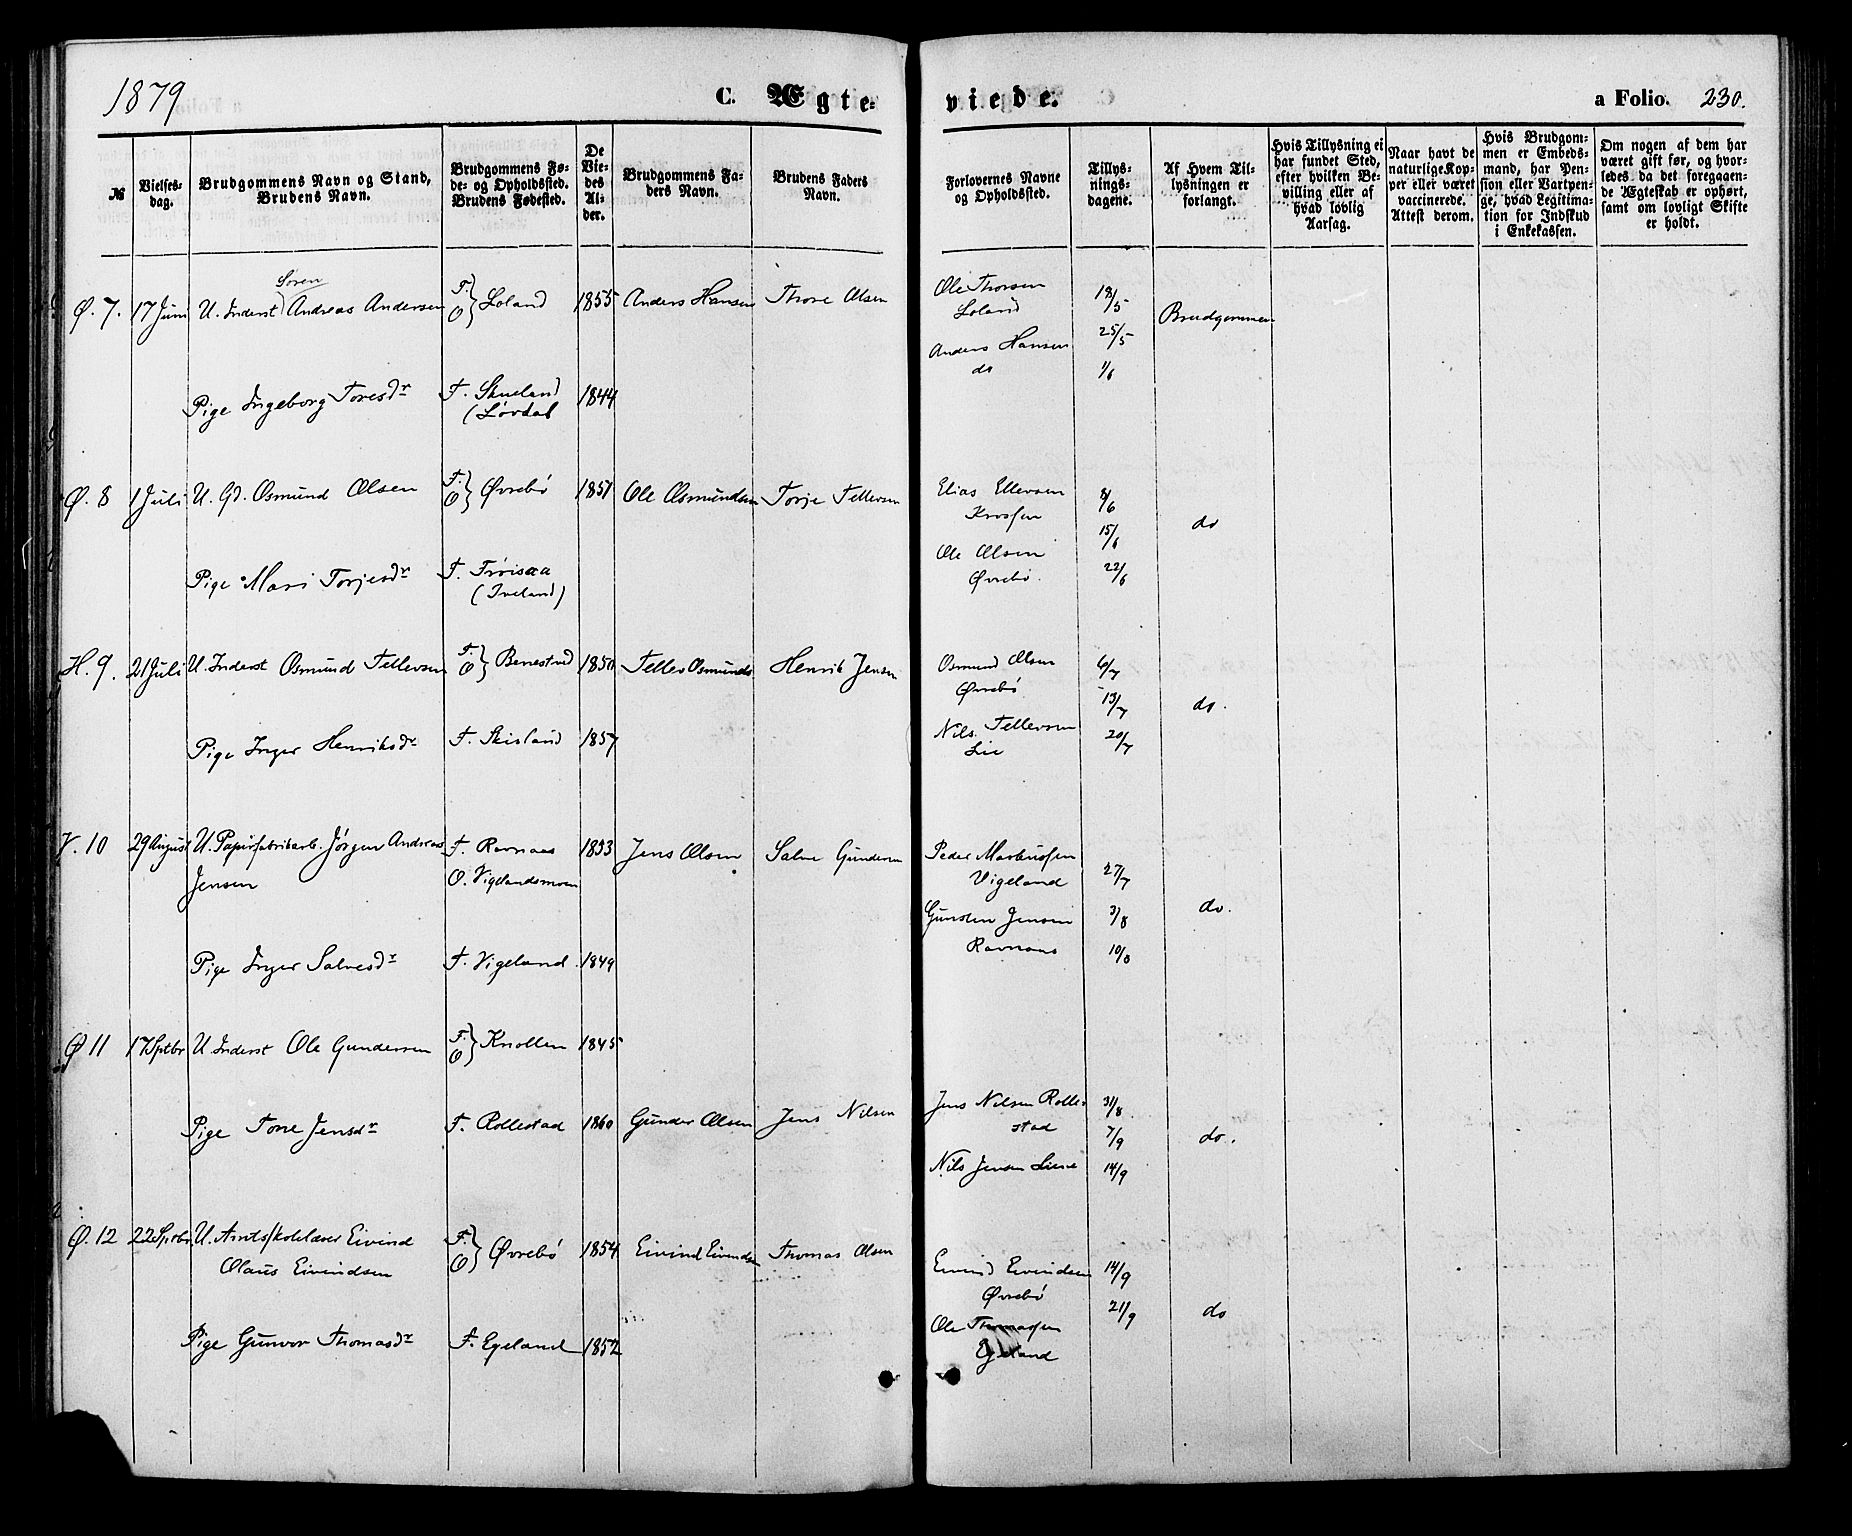 1879
C. Ægte-
viede.
a Folio. 230.
№
Vielses-
dag.
Brudgommens Navn og Stand,
Brudens Navn.
Brudgommens Fø-
de- og Opholdssted.
Brudens Fødested.
De
Vie-
des
Al-
der.
Brudgommens Fa-
ders Navn.
Brudens Faders
Navn.
Forlovernes Navne
og Opholdssted.
Tillys-
nings-
dagene.
Af Hvem Til-
lysningen er
forlangt.
Hvis Tillysning ei
har fundet Sted,
efter hvilken Be-
villing eller af
hvad lovlig
Aarsag.
Naar havt de
naturlige Kop-
per eller været
vaccinerede.
Attest derom.
Hvis Brudgom-
men er Embeds-
mand, har Pen-
sion eller Vartpen-
ge, hvad Legitima-
tion for Indskud
i Enkekassen.
Om nogen af dem har
været gift før, og hvor-
ledes da det foregaaen-
de Ægteskab er ophørt,
samt om lovligt Skifte
er holdt.
Søren
Ø. 7. 17 Juni U. Inderst Andreas Andersen F. O } Loland 1855 Anders Hansen Thore Olsen
Ole Thorsen 18/5
Loland
Brudgommen
25/5
Anders Hansen
do 1/6
Pige Ingeborg Toresdr F. Skueland 1844
(Løvdal
Ø. 8 1 Juli U. Gd. Osmund Olsen F. O } Øvrebø 1851 Ole Osmundsen Torje Tellevsen
Elias Ellevsen 8/6
15/6 do
Ole Olsen
Øvrebø. 22/6
Pige Mari Torjesdr F. Frøisaa
(Iveland)
H. 9. 21 Juli U. Inderst Osmund Tellevsen F. O } Benestad 1850 Tellev Osmunds Henrik Jensen
Osmund Olsen 6/7
Øvrebø
13/7 do.
Nils Tellevsen 20/7
Lie
Pige Inger Henriksdr F. Skisland 1857
V. 10 29 August U. Papirfabrikarb. Jørgen Andreas F. Ravnaas 1853 Jens Olsen Salve Gundersen
Jensen O. Vigelandsmoen
Peder Markussen
Vigeland 27/7
Gunsten Jensen 3/8 do.
Ravnaas 10/8
Pige Inger Salvesdr F. Vigeland 1849
Ø 11 17 Sptbr U. Inderst Ole Gundersen F. O } Knollen 1845
Pige Tone Jensdr F. Rollestad 1860 Gunder Olsen Jens Nilsen
Jens Nilsen Rolle- 31/8
stad 7/9 do.
Nils Jensen 14/9
Ø. 12 22 Sptbr. U. Amtsskolelærer Eivind F. O } Øvrebø 1854 Eivind Eivindsen Thomas Olsen
Olaus Eivindsen
Eivind Eivindsen 14/9
Øvrebø
21/9 do
Ole Thomassen
Egeland
Pige Gunvor Thomasdr F. Egeland 1852